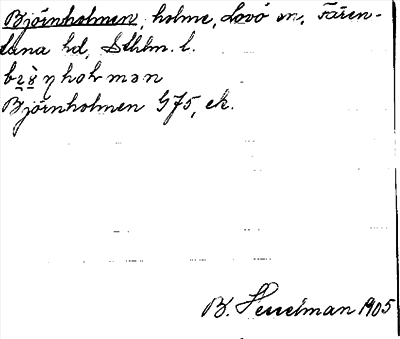 Björnholmen, holme, Lovö sn, Fären-
tuna hd, Sthlm. l.
Björnholmen G75, ek.
B. Hesselman 1905